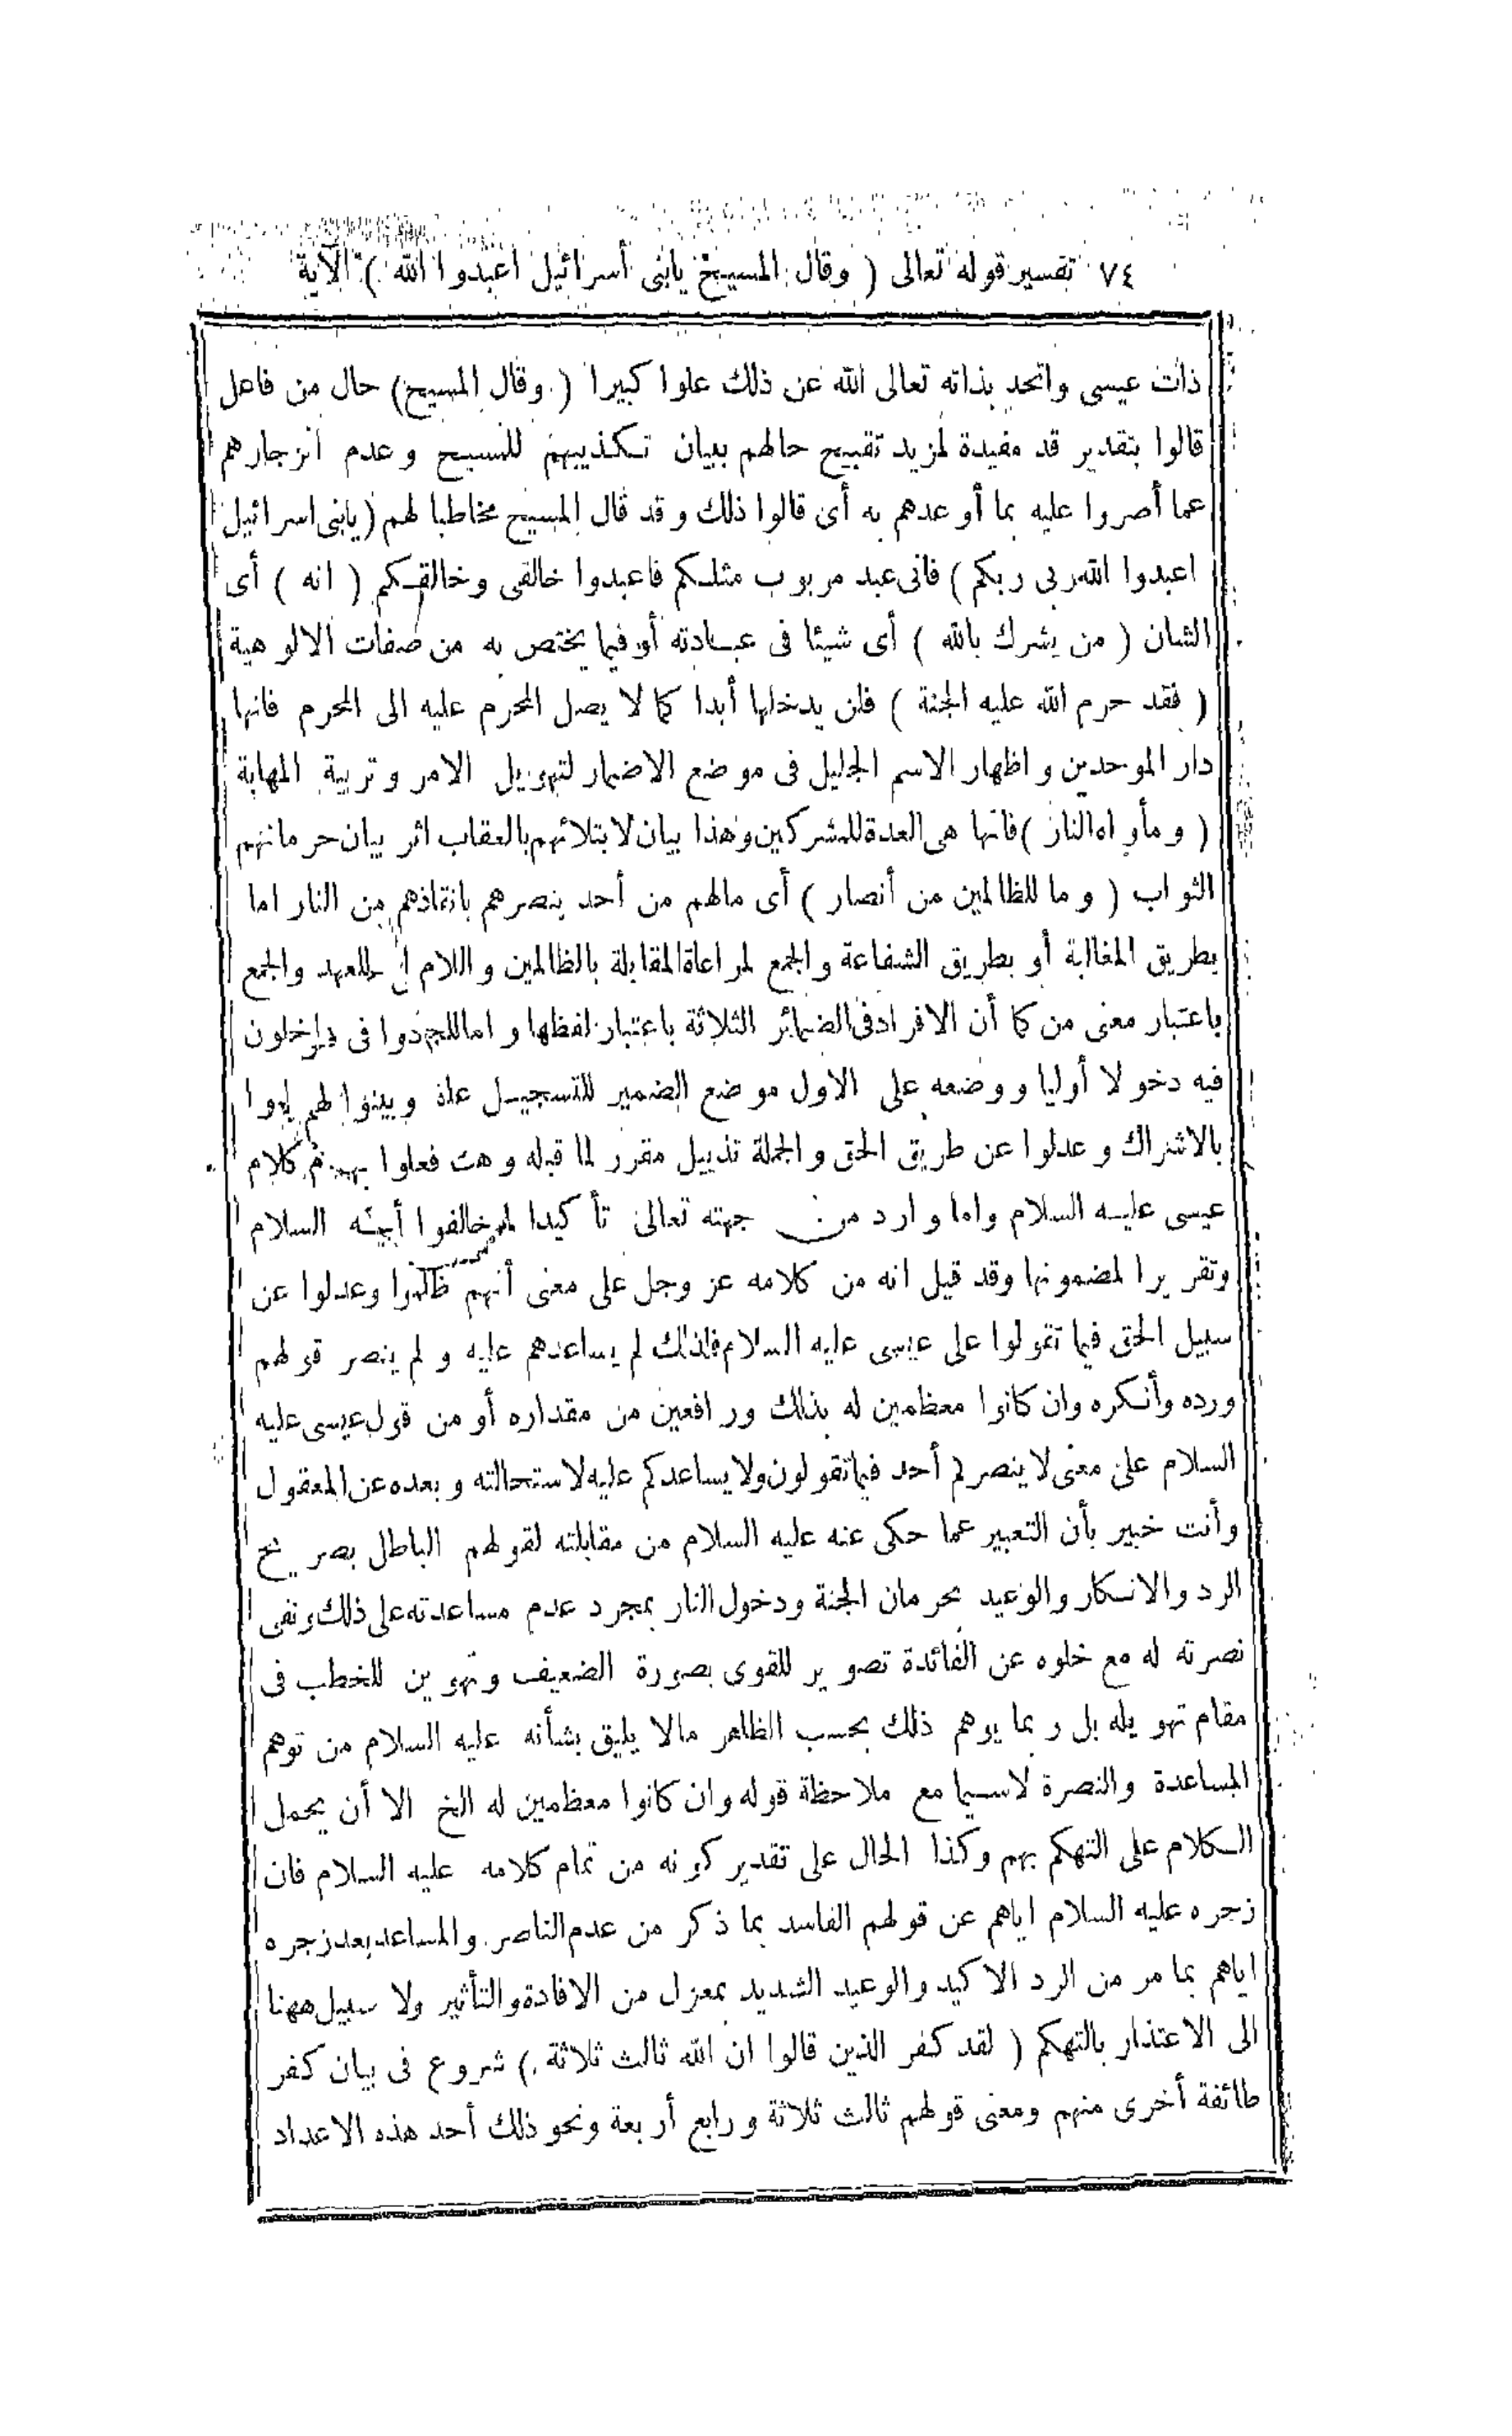 ٧٤ تفسير قوله تعالى ( وقال المسيح يابنى أسرائيل اعبدوا الله ) الآية
ذات عيسى واتحد بذاته تعالى الله عن ذلك علوا كبيرا ( وقال المسيح) حال من فاعل
قالوا بتقدير قد مفيدة لمزيد تقبيح حالهم ببيان تكذيبهم للمسيح وعدم انزجارهم
عما أصروا عليه بما أوعدهم به أى قالوا ذلك وقد قال المسيح مخاطبا لهم (يابنى اسرائيل
اعبدوا الله ربى ربكم ) فانى عبد مربوب مثلكم فاعبدوا خالقى وخالقكم ( انه ) أى
الشان ( من يشرك بالله ) أى شيئا فى عبادته أو فيما يختص به من صفات الالوهية
( فقد حرم الله عليه الجنة ) فلن يدخلها أبدا كما لا يصل المحرم عليه الى المحرم فانها
دار الموحدين واظهار الاسم الجليل فى موضع الاضمار لتهويل الامر وتربية المهابة
( ومأواه النار ) فانها هى العدة للمشركين وهذا بيان لابتلائهم بالعقاب اثر بيان حرمانهم
الثواب ( وما للظالمين من أنصار ) أى مالهم من أحد ينصرهم بانقاذهم من النار اما
بطريق المغالبة أو بطريق الشفاعة والجمع لمراعاة المقابلة بالظالمين واللام للعهد والجمع
باعتبار معنى من كما أن الافراد فى الضمائر الثلاثة باعتبار لفظها واما للجنس فى
فيه دخولا أوليا ووضعه على الاول موضع الضمير للتسجيل
بالاشراك وعدلوا عن طريق الحق والجملة تذييل مقرر لما قبله وه كلام
عيسى عليه السلام واما وارد من جهته تعالى تأكيدا السلام
وتقريرا لمضمونها وقد قيل انه من كلامه عز وجل على معنى أنهم ظلموا وعدلوا عن
سبيل الحق فيما تقولوا على عيسى عليه السلام فلذلك لم يساعدهم عليه ولم ينصر قولهم
ورده وأنكره وان كانوا معظمين له بذلك ورافعين من مقداره أو من قول عيسى عليه
السلام على معنى لا ينصركم أحد فيما تقولون ولا يساعدكم عليه لاستحالته وبعده عن المعقول
وأنت خبير بأن التعبير عما حكى عنه عليه السلام من مقابلته لقولهم الباطل بصريح
الرد والانكار والوعيد بحرمان الجنة ودخول النار بمجرد عدم مساعدته على ذلك ونفى
نصرته له مع خلوه عن الفائدة تصوير للقوى بصورة الضعيف وتهوين للخطب فى
مقام تهويله بل ربما يوهم ذلك بحسب الظاهر مالا يليق بشأنه عليه السلام من توهم
المساعدة والنصرة لاسيما مع ملاحظة قوله وان كانوا معظمين له الخ الا أن يحمل
الكلام على التهكم بهم وكذا الحال على تقدير كونه من تمام كلامه عليه السلام فان
زجره عليه السلام اياهم عن قولهم الفاسد بما ذكر من عدم الناصر والمساعد بعد زجره
اياهم بما مر من الرد الاكيد والوعيد الشديد بمعزل من الافادة والتأثير ولا سبيل ههنا
الى الاعتذار بالتهكم ( لقد كفر الذين قالوا ان الله ثالث ثلاثة ) شروع فى بيان كفر
طائفة أخرى منهم ومعنى قولهم ثالث ثلاثة ورابع أربعة ونحو ذلك أحد هذه الاعداد